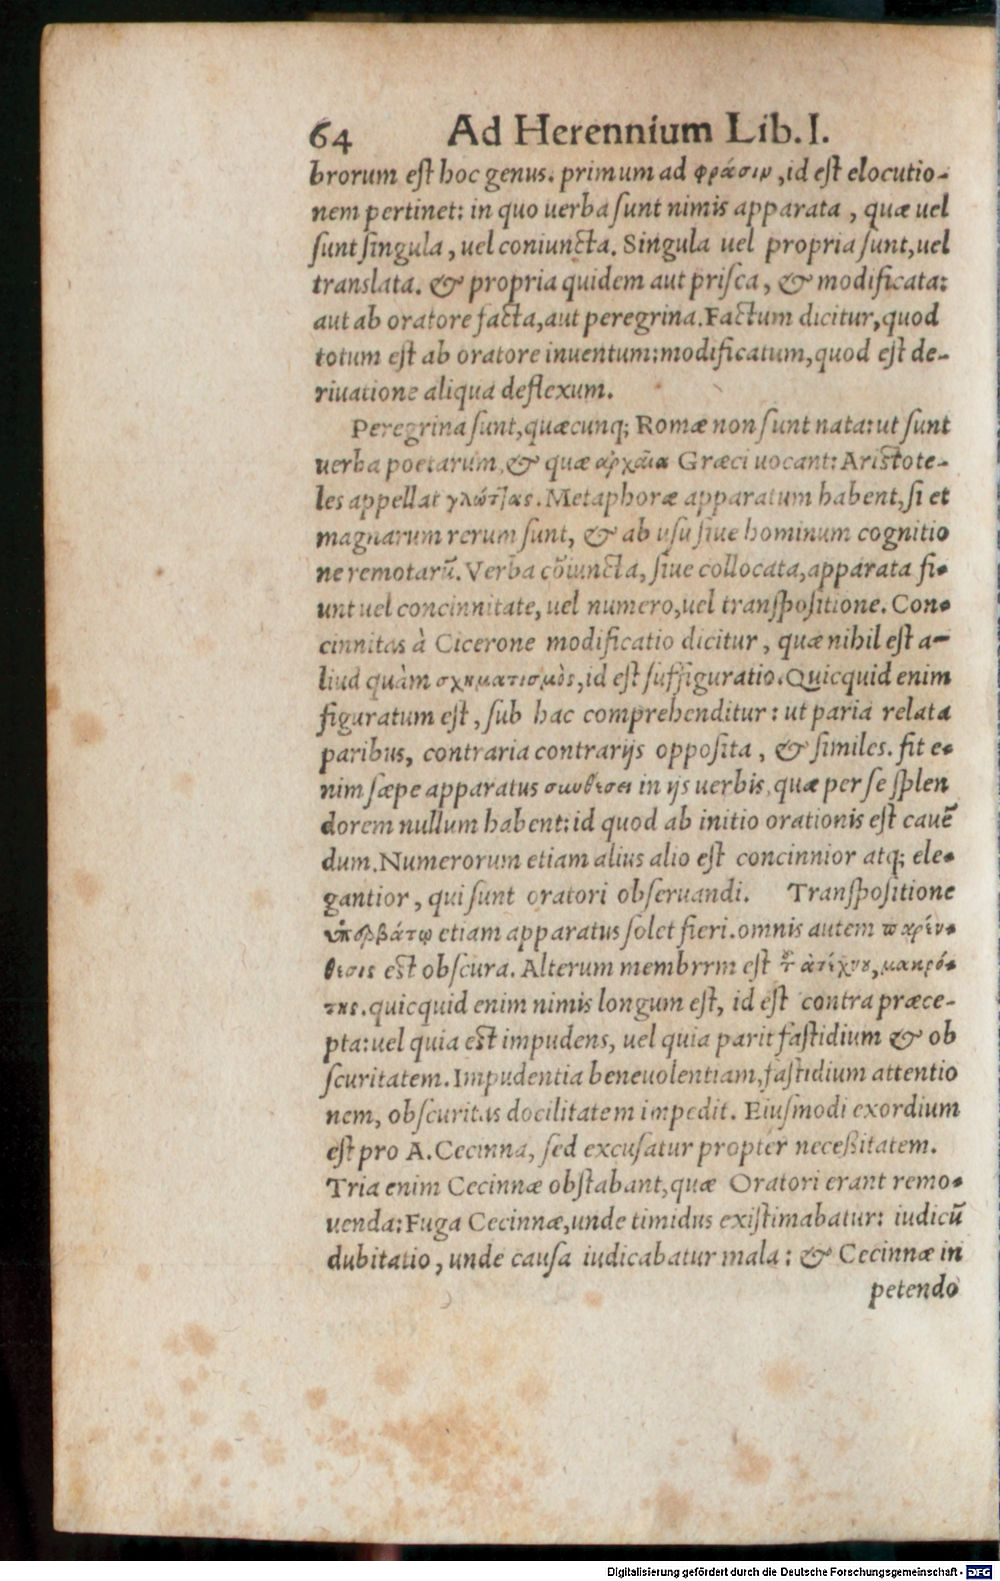 64 Ad Herennium Lib. I.
brorum est hoc genus. primum ad φράσιν, id est elocutio-
nem pertinet: in quo uerba sunt nimis apparata, quæ uel
sunt singula, uel coniuncta. Singula uel propria sunt, uel
translata. & propria quidem aut prisca, & modificata:
aut ab oratore facta, aut peregrina. Factum dicitur, quod
totum est ab oratore inuentum: modificatum, quod est de-
riuatione aliqua deflexum.
Peregrina sunt, quæcunq; Romæ non sunt nata: ut sunt
uerba poetarum, & quæ ἀρχαῖα Græci uocant: Aristote-
les appellat γλώττας. Metaphoræ apparatum habent, si et
magnarum rerum sunt, & ab usu siue hominum cognitio
ne remotarũ. Verba cõiuncta, siue collocata, apparata fi-
unt uel concinnitate, uel numero, uel transpositione. Con-
cinnitas à Cicerone modificatio dicitur, quæ nihil est a-
liud quàm σχηματισμὸς, id est suffiguratio. Quicquid enim
figuratum est, sub hac comprehenditur: ut paria relata
paribus, contraria contrarijs opposita, & similes. fit e-
nim sæpe apparatus συνθέσει in ijs uerbis, quæ per se splen
dorem nullum habent: id quod ab initio orationis est cauẽ
dum. Numerorum etiam alius alio est concinnior atq; ele-
gantior, qui sunt oratori obseruandi. Transpositione
ὑπερβάτῳ etiam apparatus solet fieri. omnis autem παρέν-
θεσις est obscura. Alterum membrrm est τ῀ ἀτέχνου, μακρό-
της. quicquid enim nimis longum est, id est contra præce-
pta: uel quia est impudens, uel quia parit fastidium & ob
scuritatem. Impudentia beneuolentiam, fastidium attentio
nem, obscuritas docilitatem impedit. Eiusmodi exordium
est pro A. Cecinna, sed excusatur propter neceßitatem.
Tria enim Cecinnæ obstabant, quæ Oratori erant remo-
uenda: Fuga Cecinnæ, unde timidus existimabatur: iudicũ
dubitatio, unde causa iudicabatur mala: & Cecinnæ in
petendo
Digitalisierung gefördert durch die Deutsche Forschungsgemeinschaft - DFG